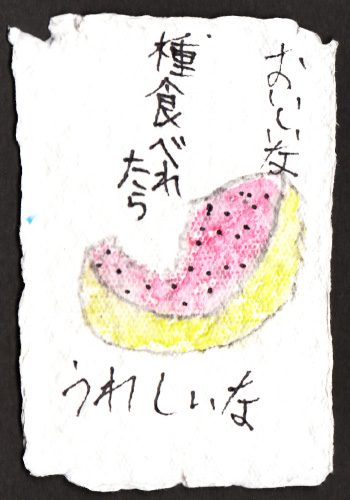 おいしいな
種食べれ
たら
うれしいな